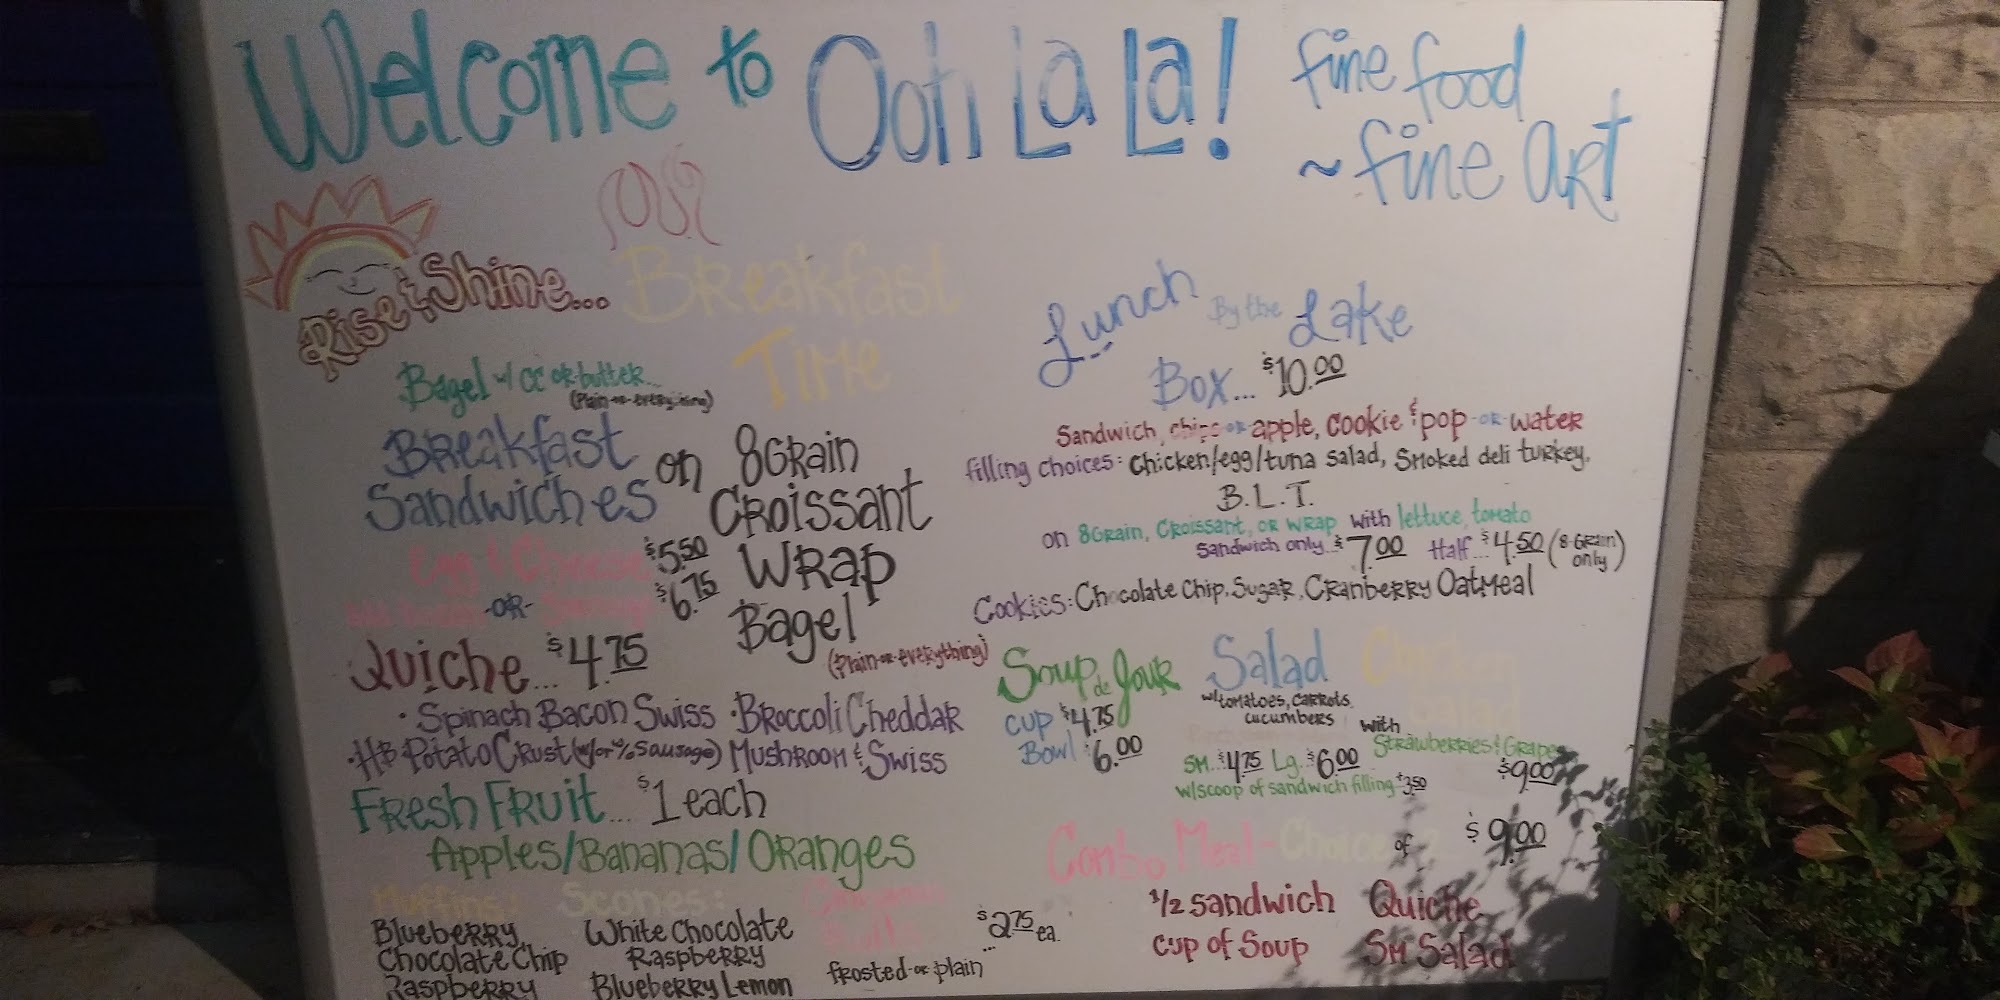 Welcome to Ooh La La!
fine food
~ fine ART
Rise & Shine...
Breakfast
Time
Bagel w/ CC OR butter...
(Plain or everything)
Breakfast
Sandwiches
on 8GRain
CRoissant
WRap
Bagel
(Plain or everything)
Egg & Cheese $5.50
-OR- $6.75
Quiche... $4.75
• Spinach Bacon Swiss • BRoccoli Cheddar
• HB Potato Crust (w/or w/o Sausage) Mushroom & Swiss
Fresh Fruit... $1 each
Apples/Bananas/ORanges
Muffins:
Blueberry
Chocolate Chip
Raspberry
Scones:
White Chocolate
Raspberry
Blueberry Lemon
Cinnamon
Rolls
frosted or plain
$2.75 ea.
...
Lunch By the Lake
Box... $10.00
Sandwich, chips or apple, cookie & pop -OR- water
filling choices: Chicken/egg/tuna salad, Smoked deli turkey,
B.L.T.
on 8GRain, CRoissant, OR WRap with lettuce, tomato
Sandwich only.. $7.00 Half.. $4.50 (8-GRain only)
Cookies: Chocolate Chip, Sugar, CRanberry Oatmeal
Soup de Jour
cup $4.75
Bowl $6.00
Salad
w/tomatoes, carrots,
cucumbers
SM.. $4.75 Lg.. $6.00
w/scoop of sandwich filling +3.50
Chicken
Salad
with
Strawberries & Grapes
$9.00
Combo Meal - Choice of 2 $9.00
1/2 sandwich Quiche
cup of Soup SM Salad